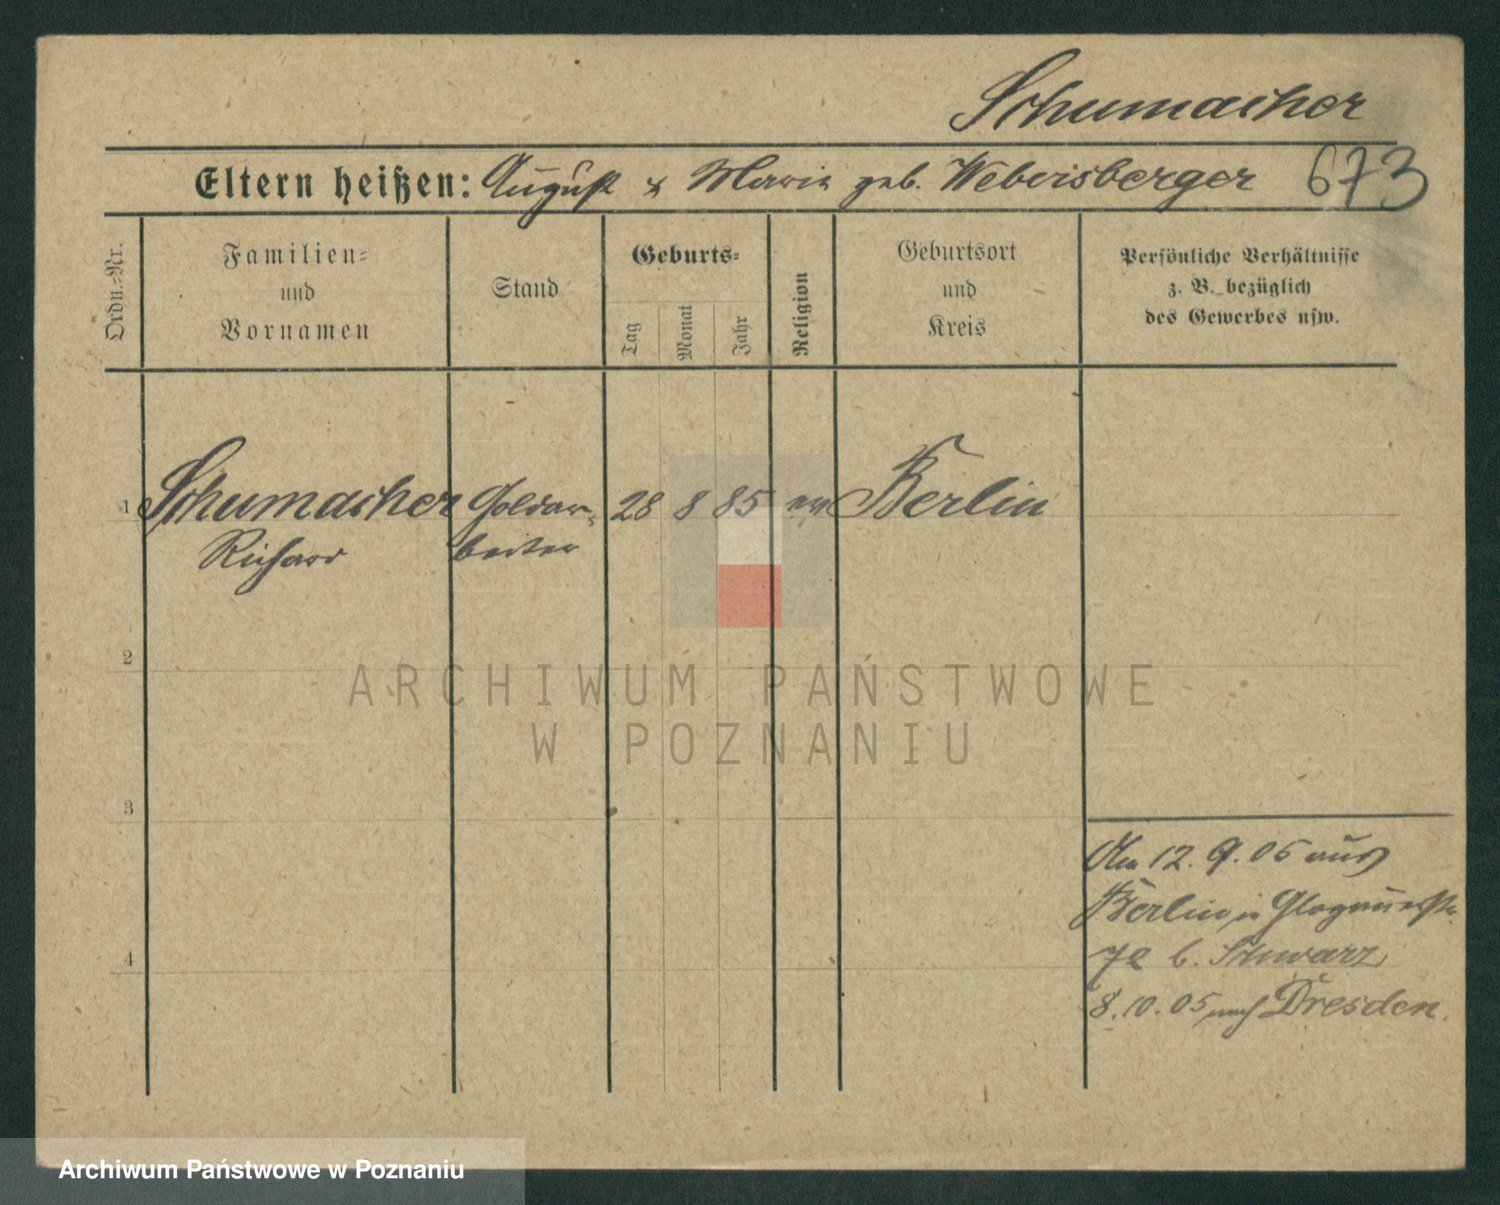 Schumacher
Eltern heißen: August & Maria geb. Webersberger 673
Ordn.-Nr.
Familien-
und
Vornamen
Stand
Geburts-
Tag
Monat
Jahr
Religion
Geburtsort
und
Kreis
Persönliche Verhältnisse
z. B. bezüglich
des Gewerbes usw.
1 Schumacher Goldar- 28 8 85 ev Berlin
Richard beiter
2
ARCHIWUM PAŃSTWOWE
W POZNANIU
3
Am 12. 9. 05 aus
Berlin in Glogauerstr.
b. Schwarz
8. 10. 05 nach Dresden.
4
Archiwum Państwowe w Poznaniu